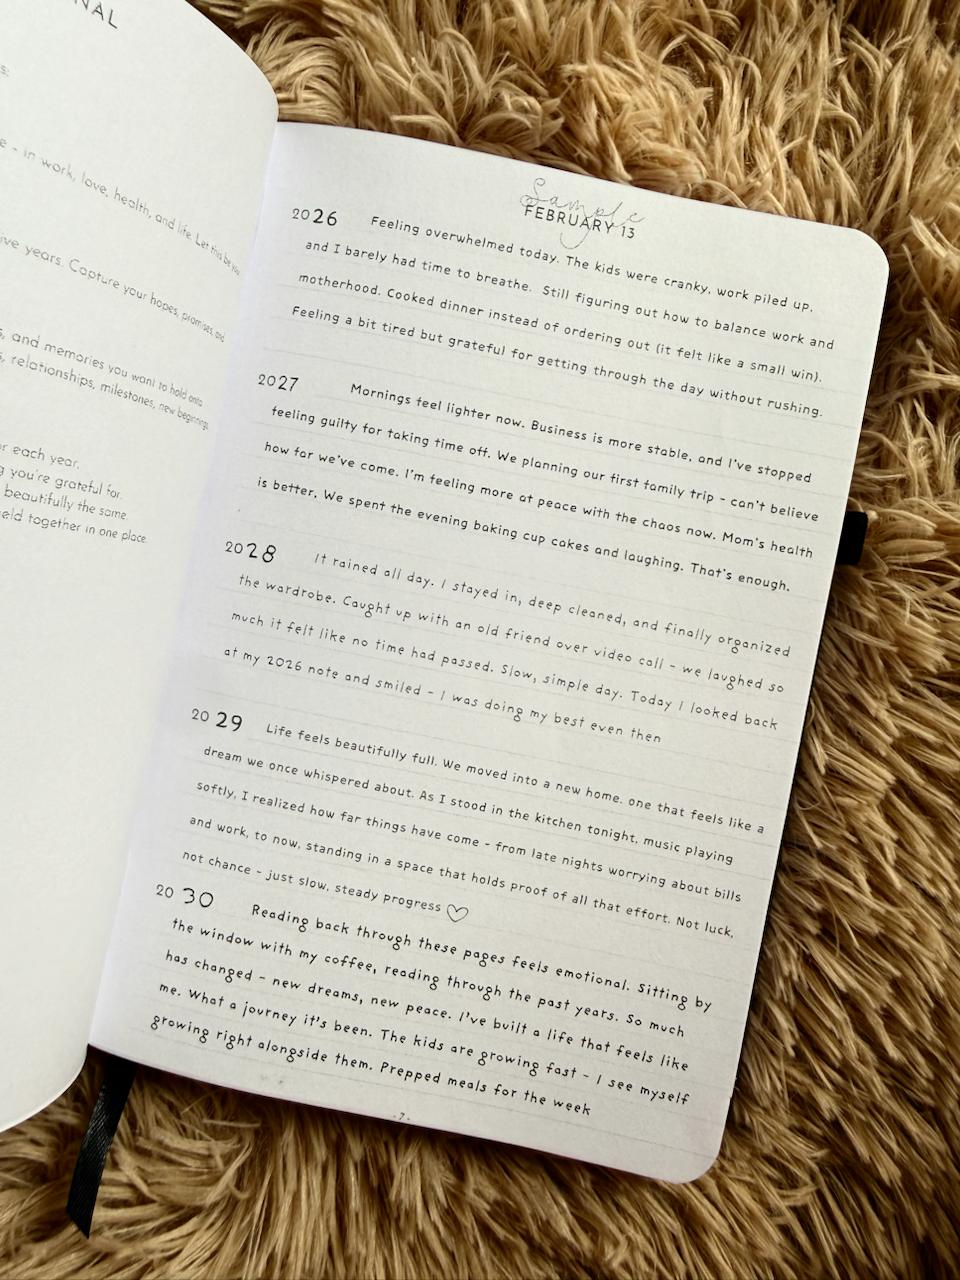 NAL
s:
e - in work, love, health, and life. Let this be you
ive years. Capture your hopes, promises, and
s, and memories you want to hold onto
s, relationships, milestones, new beginnings,
or each year.
g you're grateful for.
beautifully the same.
eld together in one place.
Sample
FEBRUARY 13
2026 Feeling overwhelmed today. The kids were cranky, work piled up,
and I barely had time to breathe. Still figuring out how to balance work and
motherhood. Cooked dinner instead of ordering out (it felt like a small win).
Feeling a bit tired but grateful for getting through the day without rushing.
2027 Mornings feel lighter now. Business is more stable, and I've stopped
feeling guilty for taking time off. We planning our first family trip - can't believe
how far we've come. I'm feeling more at peace with the chaos now. Mom's health
is better. We spent the evening baking cup cakes and laughing. That's enough.
2028 It rained all day. I stayed in, deep cleaned, and finally organized
the wardrobe. Caught up with an old friend over video call - we laughed so
much it felt like no time had passed. Slow, simple day. Today I looked back
at my 2026 note and smiled - I was doing my best even then
2029 Life feels beautifully full. We moved into a new home. one that feels like a
dream we once whispered about. As I stood in the kitchen tonight, music playing
softly, I realized how far things have come - from late nights worrying about bills
and work, to now, standing in a space that holds proof of all that effort. Not luck,
not chance - just slow, steady progress ♡
2030 Reading back through these pages feels emotional. Sitting by
the window with my coffee, reading through the past years. So much
has changed - new dreams, new peace. I've built a life that feels like
me. What a journey it's been. The kids are growing fast - I see myself
growing right alongside them. Prepped meals for the week
-7-